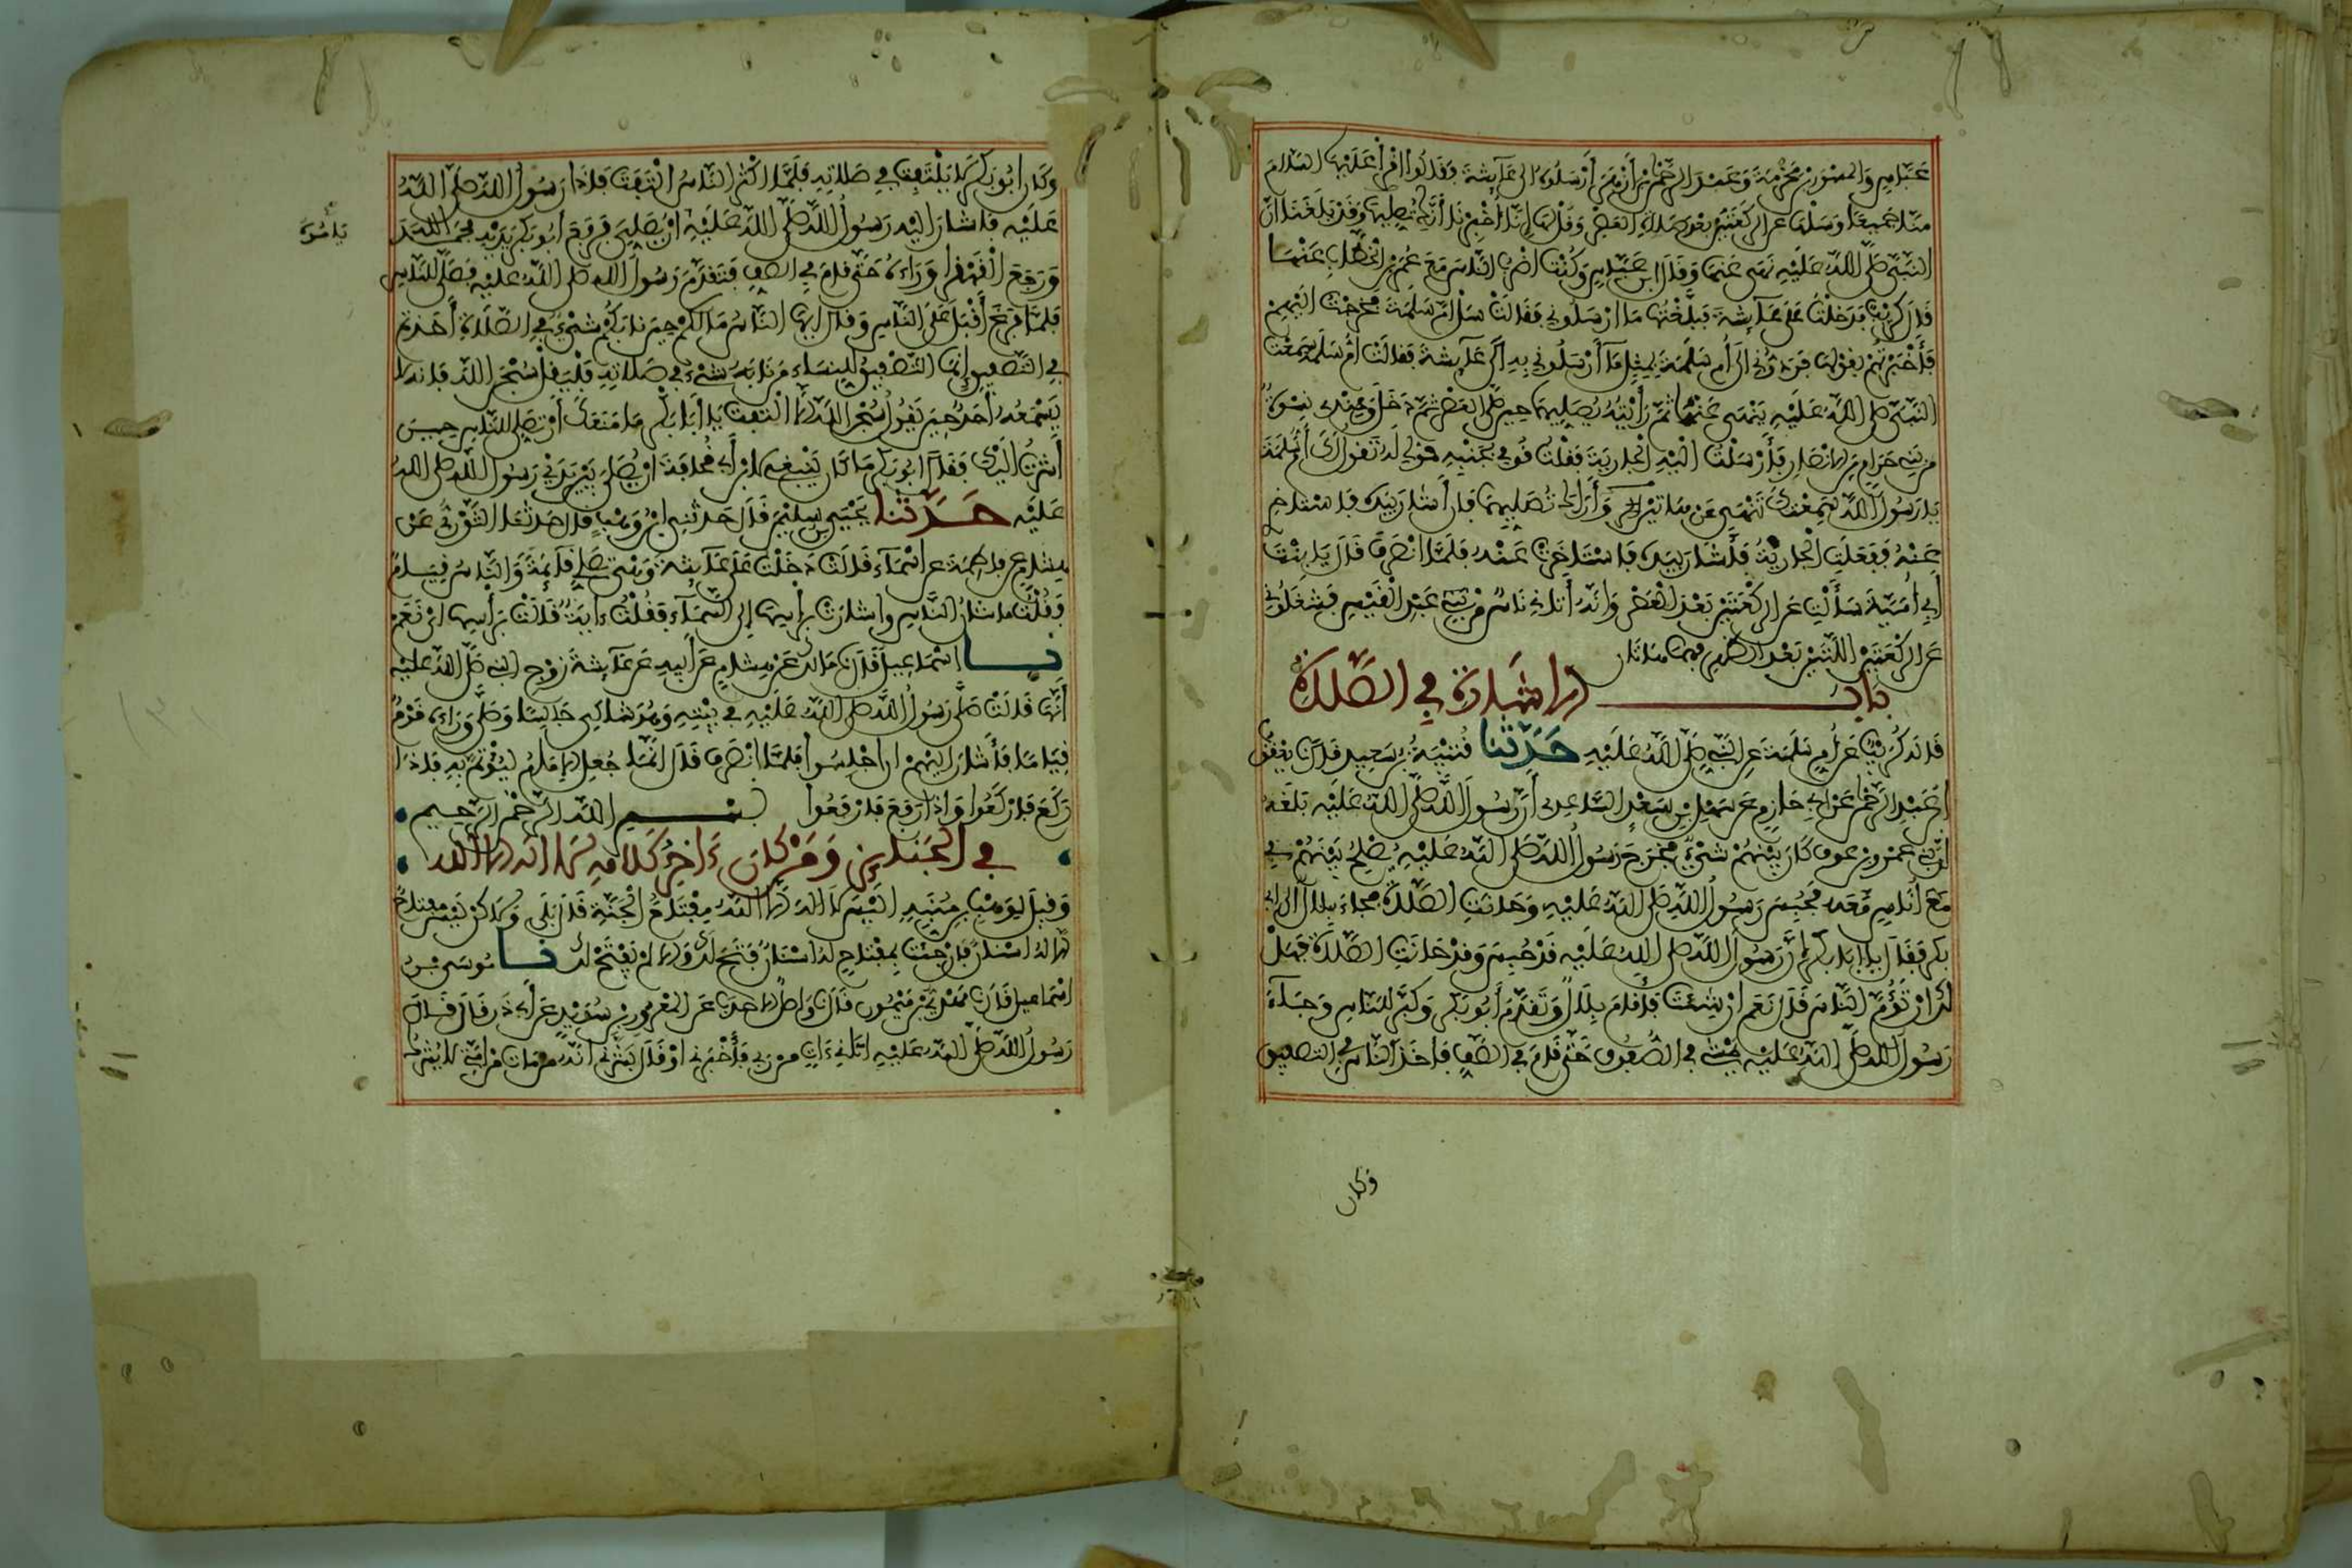 عباس والمسور بن مخرمة وعبد الرحمن بن أزهر أرسلوه الى عائشة فقالوا اقرأ عليها السلام
منا جميعا وسلها عن الركعتين بعد صلاة العصر وقل لها انا أخبرنا أنك تصليها وقد بلغنا ان
النبي صلى الله عليه نهى عنها وقال ابن عباس وكنت اضرب الناس مع عمر بن الخطاب عنهما
قال كريب فدخلت على عائشة فبلغتها ما ارسلوني فقالت سل ام سلمة فخرجت اليهم
فأخبرتهم بقولها فردوني الى أم سلمة بمثل ما أرسلوني به الى عائشة فقالت ام سلمة سمعت
النبي صلى الله عليه ينهى عنها ثم رأيته يصليهما حين صلى العصر ثم دخل وعندي نسوة
من بني حرام من الانصار فأرسلت اليه الجارية فقلت قومي بجنبه قولي له تقول لك أم سلمة
يا رسول الله سمعتك تنهى عن هاتين وأراك تصليهما فان أشار بيده فاستاخري
عنه ففعلت الجارية فأشار بيده فاستاخرت عنه فلما انصرف قال يا بنت
أبي أمية سألت عن الركعتين بعد العصر وانه أتاني ناس من بني عبد القيس فشغلوني
عن الركعتين اللتين بعد الظهر فهما هاتان
باب الاشارة في الصلاة
قاله كريب عن أم سلمة عن النبي صلى الله عليه حدثنا قتيبة بن سعيد قال نا يعقوب
بن عبد الرحمن عن ابي حازم عن سهل بن سعد الساعدي أن رسول الله صلى الله عليه بلغه
ان بني عمرو بن عوف كان بينهم شيء فخرج رسول الله صلى الله عليه يصلح بينهم في
مع أناس معه فحبس رسول الله صلى الله عليه وحانت الصلاة فجاء بلال الى ابي
بكر فقال يا ابا بكر ان رسول الله صلى الله عليه قد حبس وقد حانت الصلاة فهل
لك ان تؤم الناس قال نعم ان شئت فأقام بلال وتقدم أبو بكر وكبر للناس وجاء
رسول الله صلى الله عليه يمشي في الصفوف حتى قام في الصف فاخذ الناس في التصفيق
وكان
وكان ابو بكر لا يلتفت في صلاته فلما اكثر الناس التفت فاذا رسول الله صلى الله
عليه فاشار اليه رسول الله صلى الله عليه ان يصلي فرفع ابو بكر يديه فحمد الله
ورجع القهقرا وراءه حتى قام في الصف فتقدم رسول الله صلى الله عليه فصلى للناس
فلما فرغ أقبل على الناس وقال ايها الناس ما لكم حين نابكم شيء في الصلاة أخذتم
في التصفيق إنما التصفيق للنساء من نابه شيء في صلاته فليقل سبحان الله فانه لا
يسمعه أحد حين يقول سبحان الله الا التفت يا أبا بكر ما منعك أن تصلي للناس حين
أشرت اليك فقال ابو بكر ما كان ينبغي لابن أبي قحافة ان يصلي بين يدي رسول الله صلى الله
عليه حدثنا يحيى بن سليمن قال حدثني ابن وهب قال حدثنا الثوري عن
هشام عن فاطمة عن اسماء قالت دخلت على عائشة وهي تصلي قائمة والناس قيام
فقلت ما شأن الناس واشارت برأسها إلى السماء فقلت ءاية قالت برأسها اي نعم
نا إسماعيل قال نا مالك عن هشام عن أبيه عن عائشة زوج النبي صلى الله عليه
أنها قالت صلى رسول الله صلى الله عليه في بيته وهو شاكي جالسا وصلى وراءه قوم
قياما فأشار اليهم ان اجلسوا فلما انصرف قال انما جعل الامام ليؤتم به فاذا
ركع فاركعوا واذا رفع فارفعوا بسم الله الرحمن الرحيم
في الجنائز ومن كان ءاخر كلامه لا اله الا الله
وقيل لوهب بن منبه اليس لا اله الا الله مفتاح الجنة قال بلى ولاكن ليس مفتاح
الا له اسنان فان جئت بمفتاح له اسنان فتح لك والا لم يفتح لك نا موسى بن
اسماعيل قال نا مهدي بن ميمون قال نا واصل الاحدب عن المعرور بن سويد عن أبي ذر قال قال
رسول الله صلى الله عليه اتاني ءات من ربي فأخبرني او قال بشرني انه من مات من امتي لا يشرك